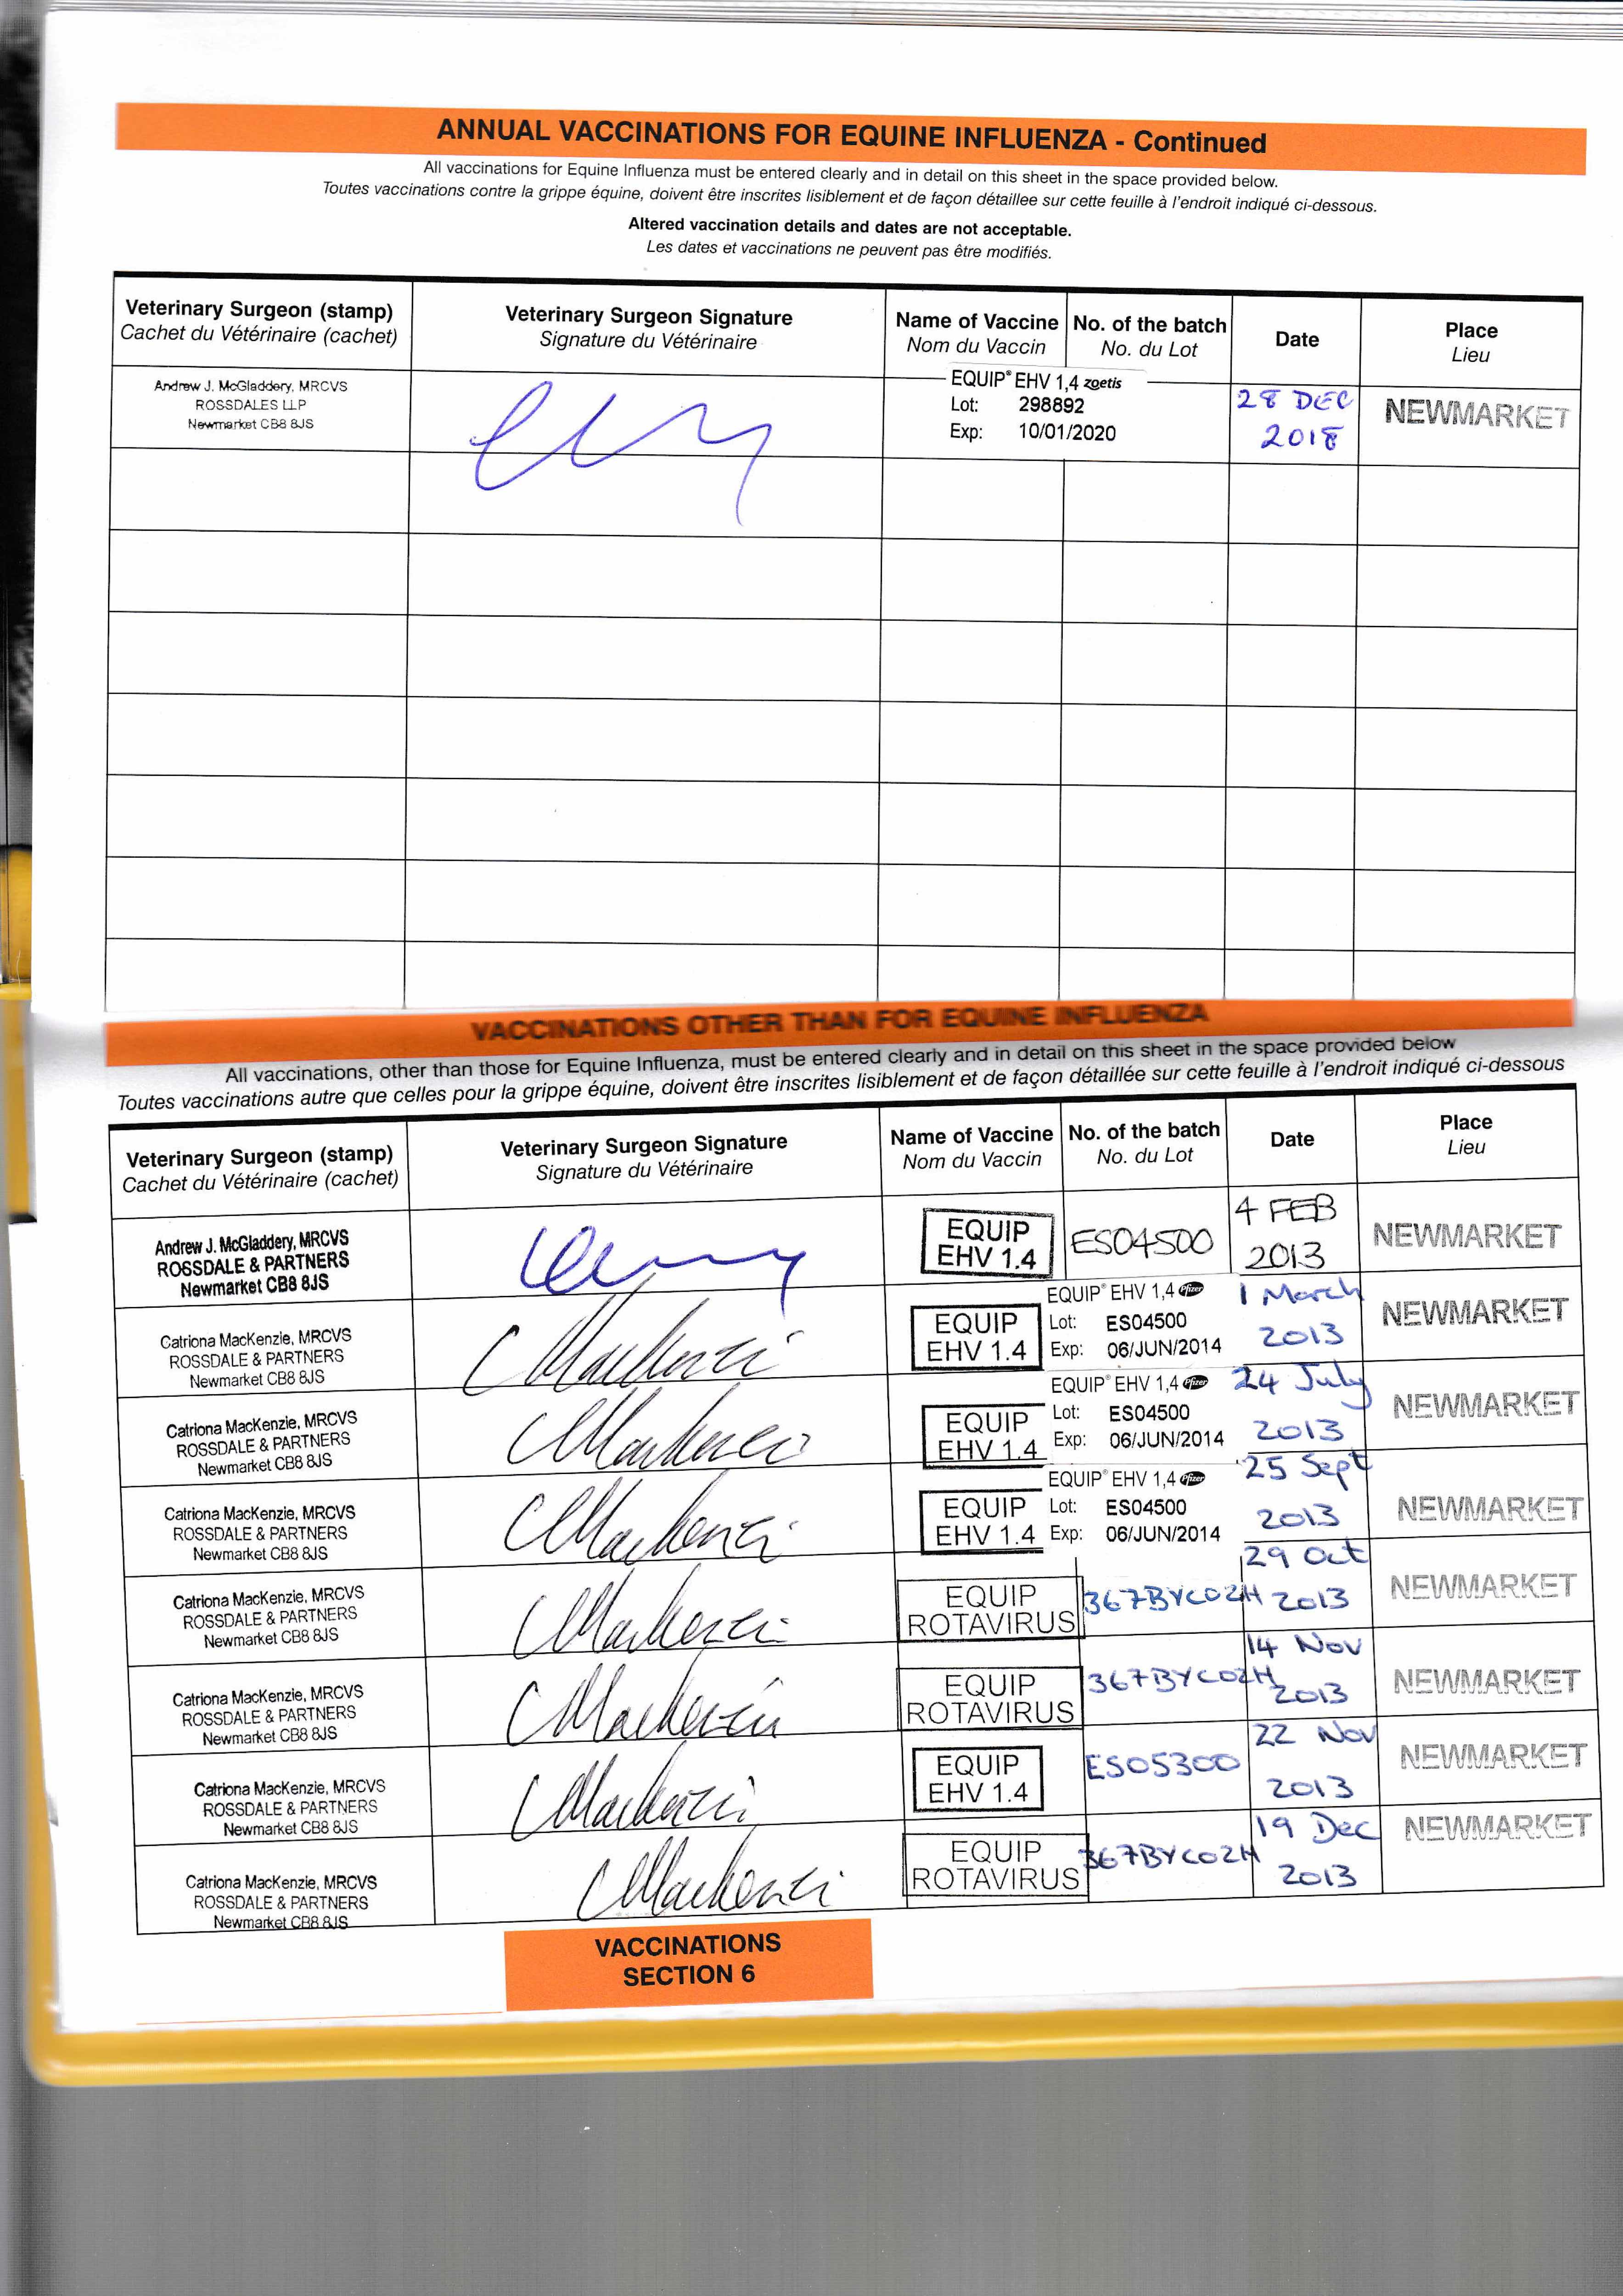 ANNUAL VACCINATIONS FOR EQUINE INFLUENZA - Continued
All vaccinations for Equine Influenza must be entered clearly and in detail on this sheet in the space provided below.
Toutes vaccinations contre la grippe équine, doivent être inscrites lisiblement et de façon détaillee sur cette feuille à l'endroit indiqué ci-dessous.
Altered vaccination details and dates are not acceptable.
Les dates et vaccinations ne peuvent pas être modifiés.
Veterinary Surgeon (stamp)
Cachet du Vétérinaire (cachet)
Veterinary Surgeon Signature
Signature du Vétérinaire
Name of Vaccine
Nom du Vaccin
No. of the batch
No. du Lot
Date
Place
Lieu
Andrew J. McGladdery, MRCVS
ROSSDALES LLP
Newmarket CB8 8JS
EQUIP® EHV 1,4 zoetis
Lot: 298892
Exp: 10/01/2020
28 DEC
2018
NEWMARKET
VACCINATIONS OTHER THAN FOR EQUINE INFLUENZA
All vaccinations, other than those for Equine Influenza, must be entered clearly and in detail on this sheet in the space provided below
Toutes vaccinations autre que celles pour la grippe équine, doivent être inscrites lisiblement et de façon détaillée sur cette feuille à l'endroit indiqué ci-dessous
Veterinary Surgeon (stamp)
Cachet du Vétérinaire (cachet)
Veterinary Surgeon Signature
Signature du Vétérinaire
Name of Vaccine
Nom du Vaccin
No. of the batch
No. du Lot
Date
Place
Lieu
Andrew J. McGladdery, MRCVS
ROSSDALE & PARTNERS
Newmarket CB8 8JS
EQUIP
EHV 1.4
ES04500
4 FEB
2013
NEWMARKET
Catriona MacKenzie, MRCVS
ROSSDALE & PARTNERS
Newmarket CB8 8JS
CMackenzie
EQUIP
EHV 1.4
EQUIP® EHV 1,4 Pfizer
Lot: ES04500
Exp: 06/JUN/2014
1 March
2013
NEWMARKET
Catriona MacKenzie, MRCVS
ROSSDALE & PARTNERS
Newmarket CB8 8JS
CMackenzie
EQUIP
EHV 1.4
EQUIP® EHV 1,4 Pfizer
Lot: ES04500
Exp: 06/JUN/2014
24 July
2013
NEWMARKET
Catriona MacKenzie, MRCVS
ROSSDALE & PARTNERS
Newmarket CB8 8JS
CMackenzie
EQUIP
EHV 1.4
EQUIP® EHV 1,4 Pfizer
Lot: ES04500
Exp: 06/JUN/2014
25 Sept
2013
NEWMARKET
Catriona MacKenzie, MRCVS
ROSSDALE & PARTNERS
Newmarket CB8 8JS
CMackenzie
EQUIP
ROTAVIRUS
367BYC02H
29 Oct
2013
NEWMARKET
Catriona MacKenzie, MRCVS
ROSSDALE & PARTNERS
Newmarket CB8 8JS
CMackenzie
EQUIP
ROTAVIRUS
367BYC02H
14 Nov
2013
NEWMARKET
Catriona MacKenzie, MRCVS
ROSSDALE & PARTNERS
Newmarket CB8 8JS
CMackenzie
EQUIP
EHV 1.4
ES05300
22 Nov
2013
NEWMARKET
Catriona MacKenzie, MRCVS
ROSSDALE & PARTNERS
Newmarket CB8 8JS
CMackenzie
EQUIP
ROTAVIRUS
367BYC02H
19 Dec
2013
NEWMARKET
VACCINATIONS
SECTION 6